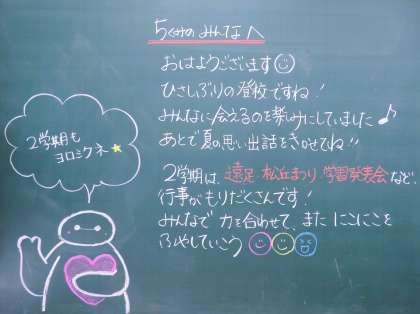 5くみのみんなへ
おはようございます
ひさしぶりの登校ですね!
みんなに会えるのを楽しみにしていました♪
あとで夏の思い出話をきかせてね!!
2学期は、遠足 松丘まつり 学習発表会など、
行事がもりだくさんです!
みんなで力を合わせて、また にこにこを
ふやしていこう
2学期も
ヨロシクネ★